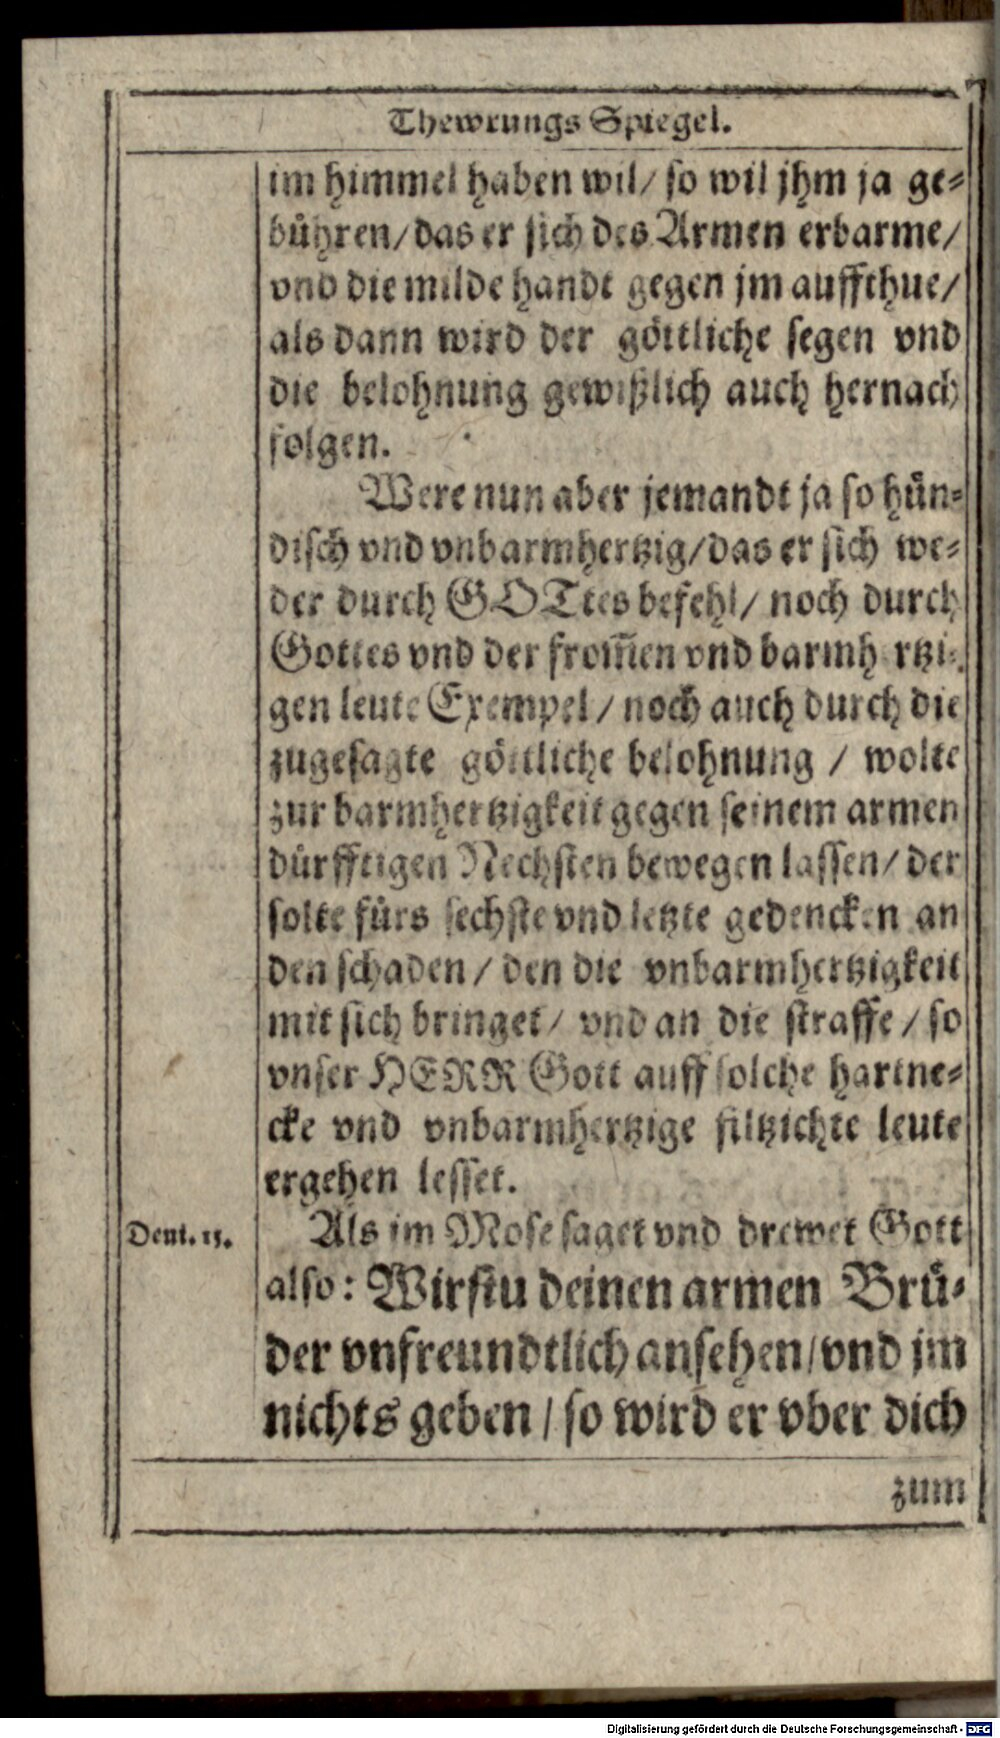 Thewrungs Spiegel.
im himmel haben wil/ so wil jhm ja ge⸗
bühren/ das er sich des Armen erbarme/
vnd die milde handt gegen jm auffthue/
als dann wird der göttliche segen vnd
die belohnung gewißlich auch hernach
folgen.
Were nun aber jemandt ja so hün⸗
disch vnd vnbarmhertzig/ das er sich we⸗
der durch GOTtes befehl/ noch durch
Gottes vnd der from̅en vnd barmh rtzi⸗
gen leute Exempel/ noch auch durch die
zugesagte göttliche belohnung / wolte
zur barmhertzigkeit gegen seinem armen
dürfftigen Nechsten bewegen lassen/ der
solte fürs sechste vnd letzte gedencken an
den schaden/ den die vnbarmhertzigkeit
mit sich bringet/ vnd an die straffe/ so
vnser HERR Gott auff solche hartne⸗
cke vnd vnbarmhertzige filtzichte leute
ergehen lesset.
Deut. 15.
Als im Mose saget vnd drewet Gott
also: Wirstu deinen armen Brü⸗
der vnfreundtlich ansehen/ vnd jm
nichts geben/ so wird er vber dich
zum
Digitalisierung gefördert durch die Deutsche Forschungsgemeinschaft - DFG